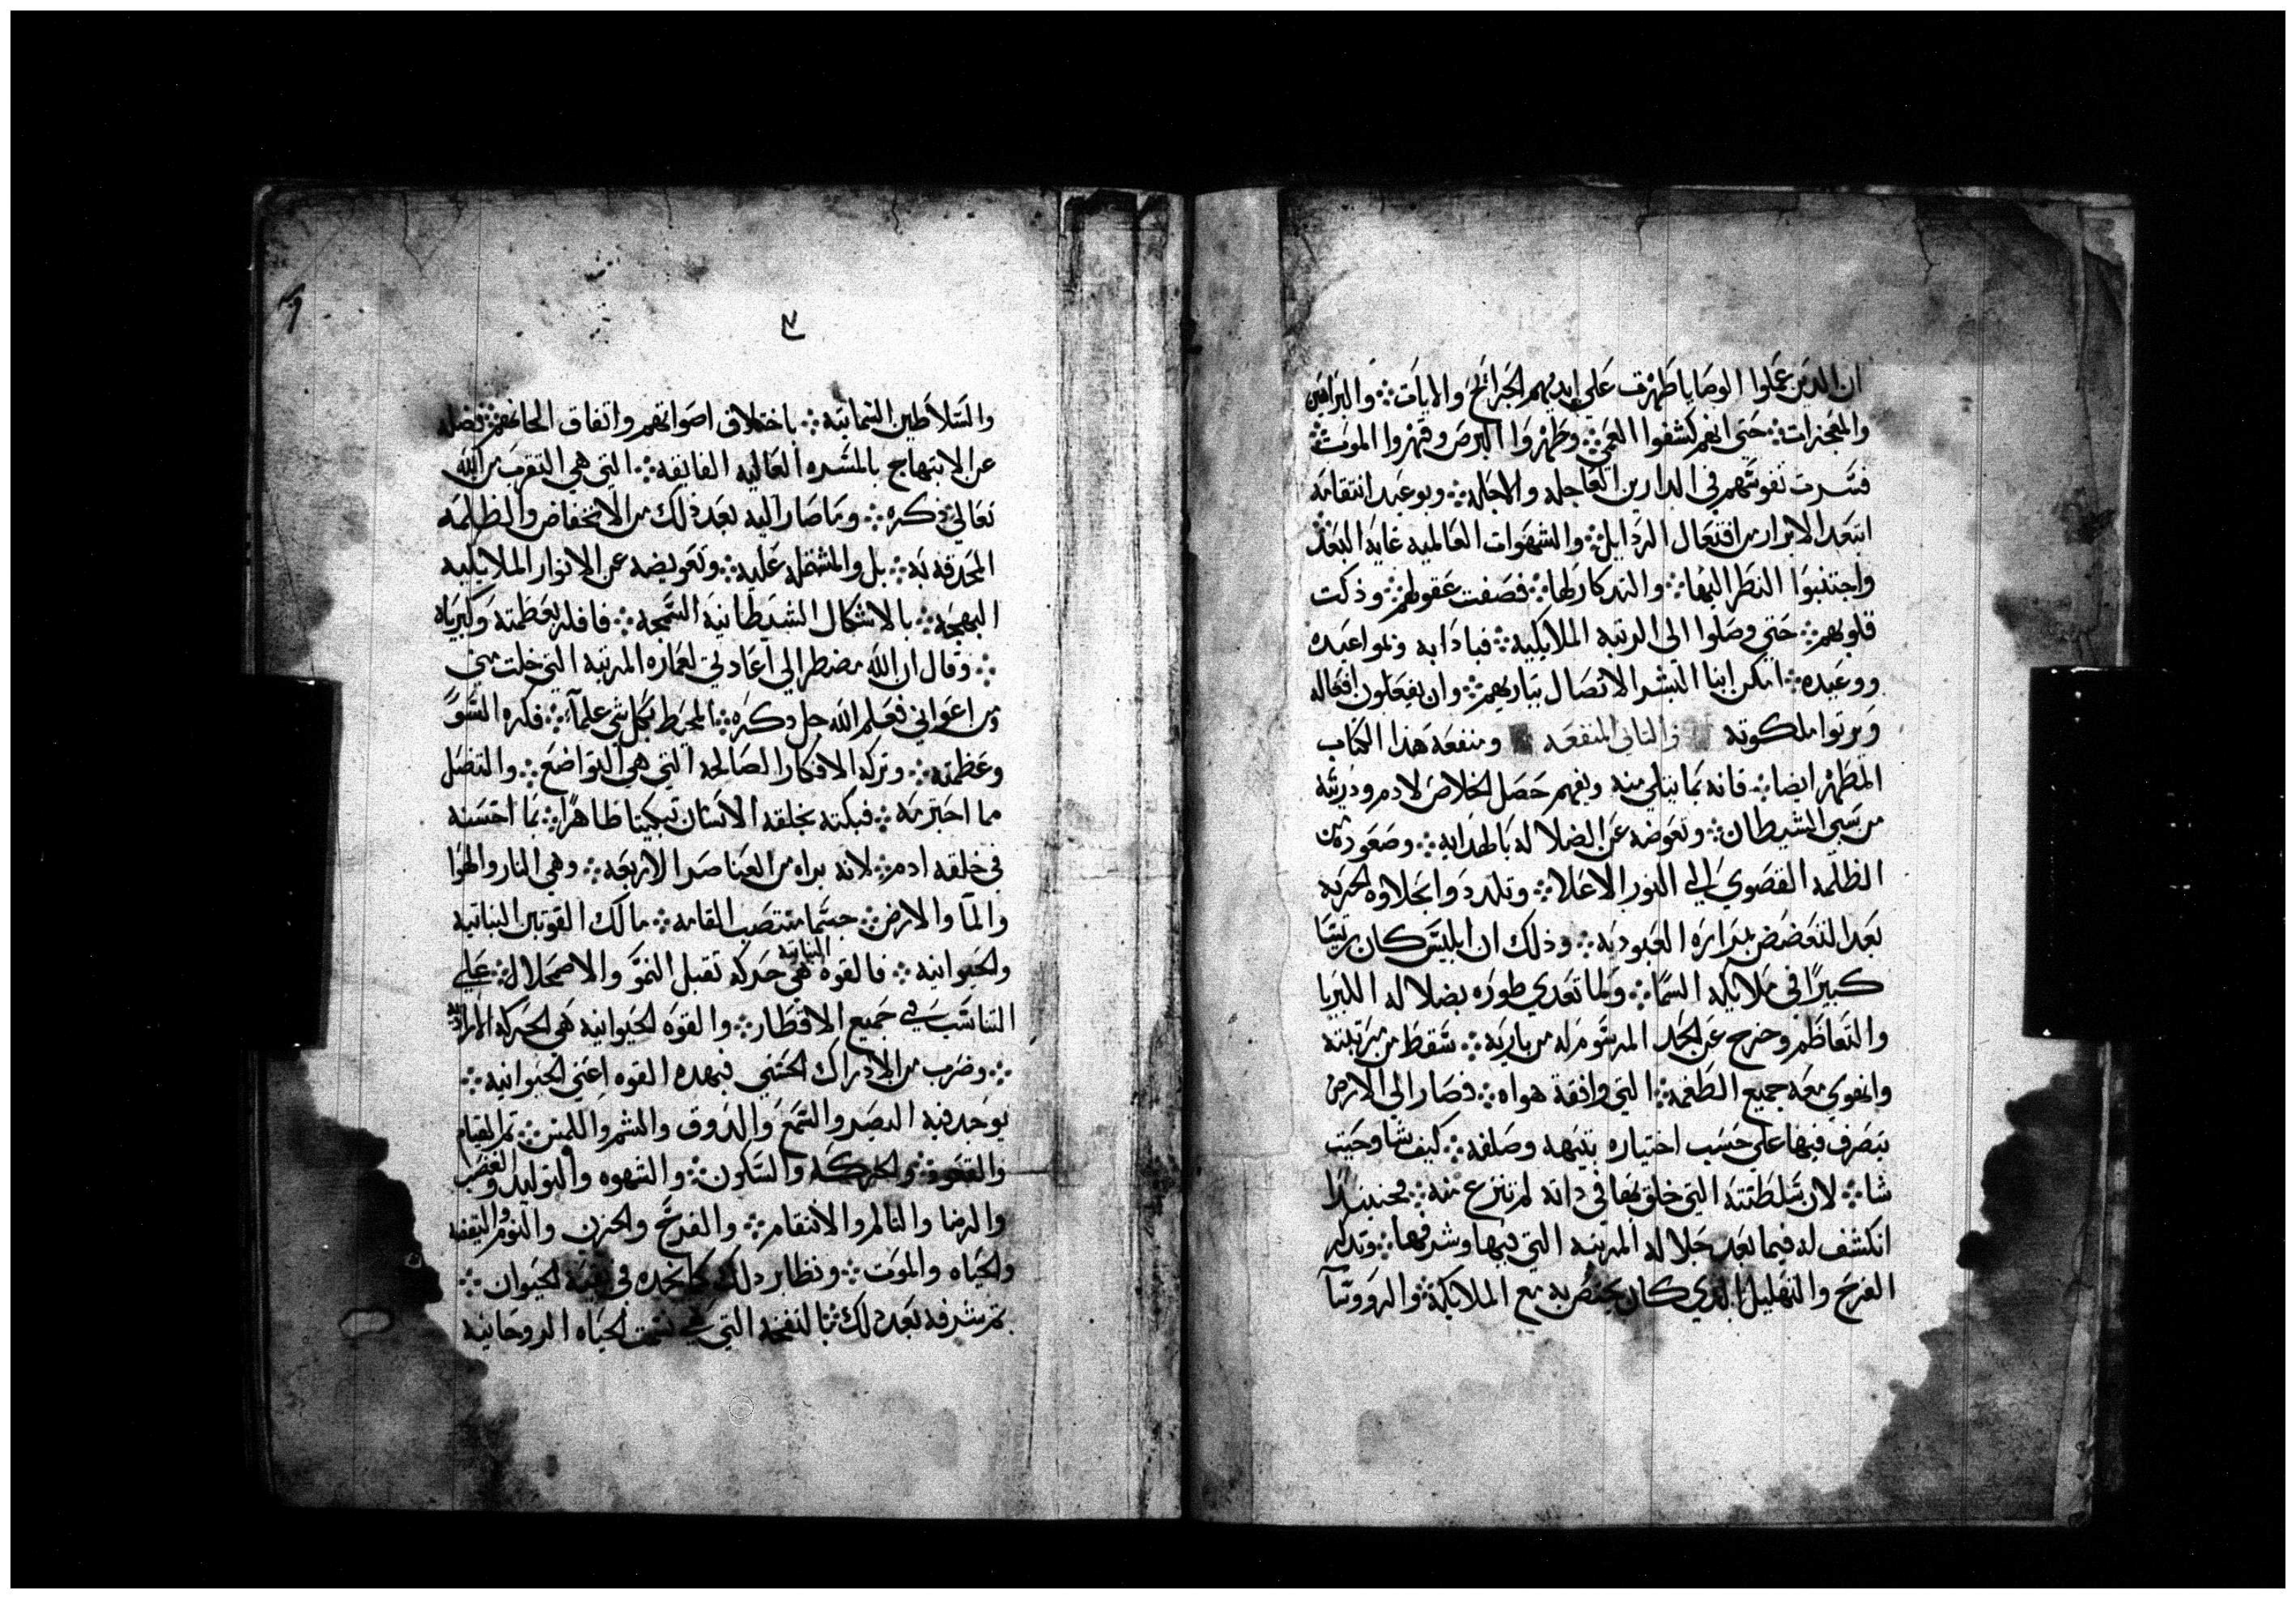 ان الدين عملوا الوصايا ظهرت علي ايديهم الجرايح والايات ܀ والبراهين
والمعجزات ܀ حتي انهم كشفوا العمي ܀ وطهروا البرص وقهروا الموت ܀
فسرت نفوسهم في الدارين العاجله والاجله ܀ وبوعيد انتقامه
ابتعد الابرار من افتعال الردايل ܀ والشهوات العالميه غاية البعد ܀
واجتنبوا النظر اليها ܀ والتدكار لها ܀ فصفت عقولهم ܀ وذكت
قلوبهم ܀ حتي وصلوا الى الرتبه الملايكيه ܀ فبادابه ونمواعيده
ووعيده ܀ امكن ابنا البشر الاتصال بباريهم ܀ وان يفعلون افعاله
ويرتوا ملكوته والثاني المنفعه ومنفعة هذا الكتاب
المطهر ايضا ܀ فانه بما يتلي منه ويفهم حصل الخلاص لادم وذريته
من سبي الشيطان ܀ وتعوضه عن الضلاله بالهدايه ܀ وصعوده من
الظلمه القصوي الى النور الاعلا ܀ وتلدد وابحلاوة الحريه
بعد التغضض بمرارة العبوديه ܀ وذلك ان ابليس كان رييسا
كبيرًا في ملايكة السما ܀ ولما تعدي طوره بضلاله الكبريا
والتعاظم وخرج عن الحد المرسوم له من باريه ܀ سقط من مرتبته
وانهوي معه جميع الطغمه ܀ التي وافقة هواه ܀ فصار الى الارض
يتصرف فيها علي حسب اختياره بتيهه وصلفه ܀ كيف شا وحيت
شا ܀ لان سلطنته التي خلق بها في داته لم تنزع منه ܀ فحينيدًا
انكشف له فيما بعد جلالة المرتبه التي فيها وشرفها ܀ وتدكر
الفرح والتهليل الذي كان يختص به مع الملايكه ܀ والرووسآ
٧
والسلاطين السمانيه ܀ باختلاف اصواتهم واتفاق الحانهم ܀ فضله
عن الابتهاج بالمسره العاليه الفايقه ܀ التي هي التقرب من الله
تعالي ذكره ܀ وما صار اليه بعد ذلك من الانخفاض والظلمه
المحدقه به ܀ بل والمشتمله عليه ܀ وتعويضه عن الانوار الملايكيه
البهجه ܀ بالاشكال الشيطانيه السمجه ܀ فافلر بعظمته وكبرياه
܀ وقال ان الله مضطر الي اعادتي لعمارة المرتبه التي خلت مني
ومن اعواني فعلم الله جل دكره ܀ المحيط بكل شي علمآ ܀ فكره السو
وعظمته ܀ وتركه الافكار الصالحه التي هي التواضع ܀ والتنصل
مما اجترمه ܀ فبكته بخلقه الانسان تبكيتا ظاهرًا ܀ بما احسنه
في خلقه ادم ܀ لانه براه من العناصر الاربعه ܀ وهي النار والهوا
والمآ والارض ܀ جسما منتصب القامه ܀ مالك القوتين النباتيه
والحيوانيه ܀ فالقوه النباتيه هي حركه تقبل النمو والاضمحلال ܀ علي
التناسب في جميع الاقطار ܀ والقوه الحيوانيه هي الحركه الاراديه
܀ وضرب من الادراك الحسي فبهده القوه اعني الحيوانيه ܀
يوجد فيه البصر والسمع والدوق والشم واللمس ܀ تم القيام
والقعود ܀ والحركه والسكون ܀ والشهوه والتوليد والغضب
والرضا والتالم والانتقام ܀ والفرح والحزن والنوم واليقضه
والحياه والموت ܀ ونظاير دلك كما نجده في بقية الحيوان ܀
تم شرفه بعد دلك ܀ بالنفخه التي هي نسمت الحياه الروحانيه